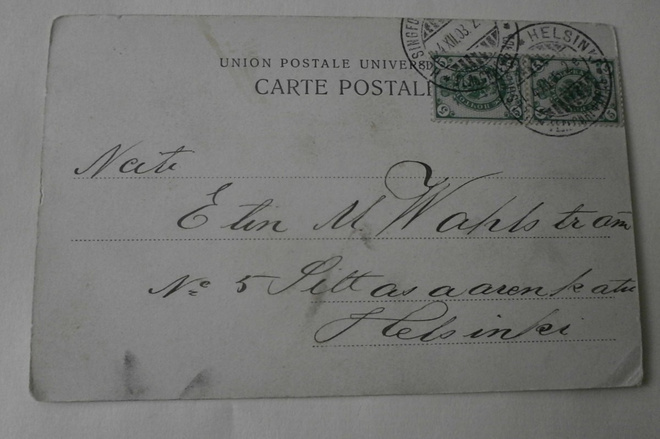 UNION POSTALE UNIVERS
CARTE POSTALE
HELSINGFO
4.XII.03.2
HELSINKI
5
5
Neiti
Elin M. Wahlström
No 5 Siltasaarenkatu
Helsinki